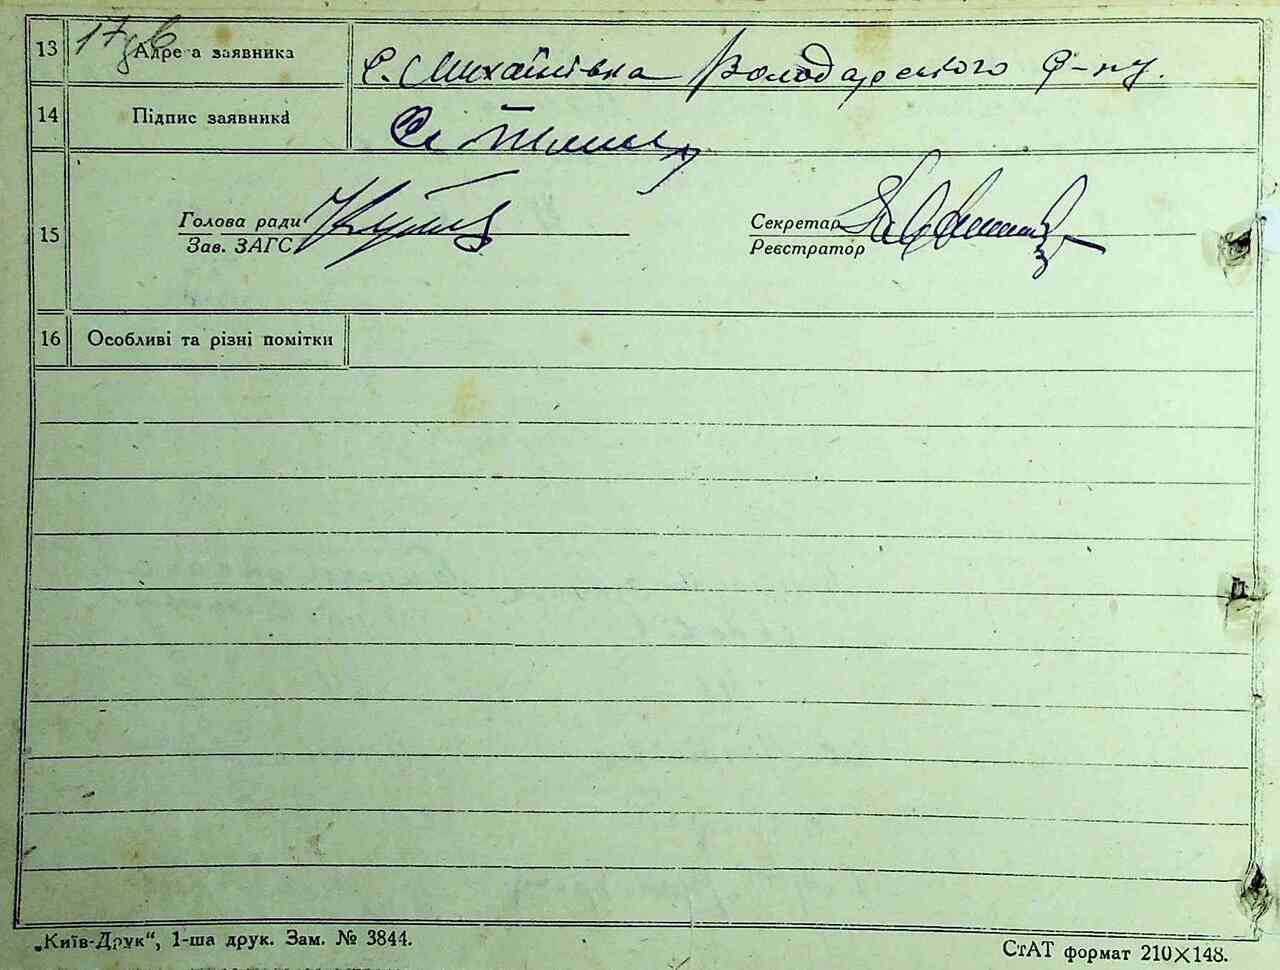 13 Адреса заявника с. Михайлівка Володарського р-ну.
14 Підпис заявника
15 Голова ради Секретар
Зав. ЗАГС Реєстратор
16 Особливі та різні помітки
„Київ-Друк“, 1-ша друк. Зам. № 3844.
СтАТ формат 210×148.